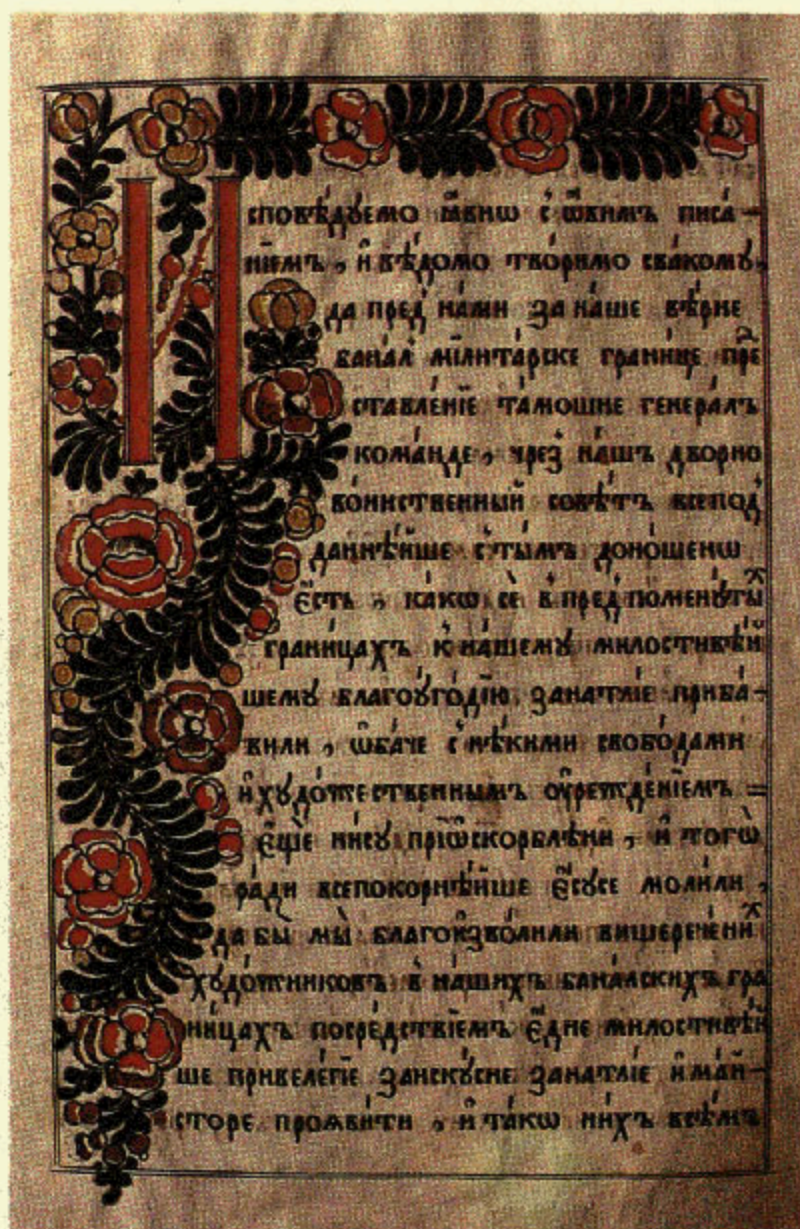 Исповѣдꙋемо ѩвнѡ с̾ ѡвимъ писа-
нїемъ, и҆ вѣдомо творимо свакомꙋ,
да пред̾ нами за наше вѣрне
банал̾ милитарске границе пре
ставленїе тамошне генералъ
команде, чрез̾ нашъ дворно
воинственный совѣтъ всепод̾
даннѣйше с̾тымъ доношено
є҆сть, какѡ се в̾ пред̾поменꙋтыͯ
границахъ к̾нашемꙋ милостивѣй
шемꙋ благоꙋгодїю, занатлїе приба-
вили, ѡ҆баче с̾ нѣкими свободами
и҆ хꙋдожественнымъ ᲂу҆режденїемъ =
є҆ще нисꙋ прїѡскорблѣни, и҆ тогѡ
ради всепокорнѣйше є҆сꙋсе молили,
да бы мы̀ благоизволили вишеречениͯ
хꙋдожниковъ в̾ нашихъ баналскихъ гра
ницахъ посредствїемъ є҆дне милостивѣй
ше привелегїе заискꙋсне занатлїе и҆ май-
сторе проѧвити, и҆ такѡ нихъ всѣмъ